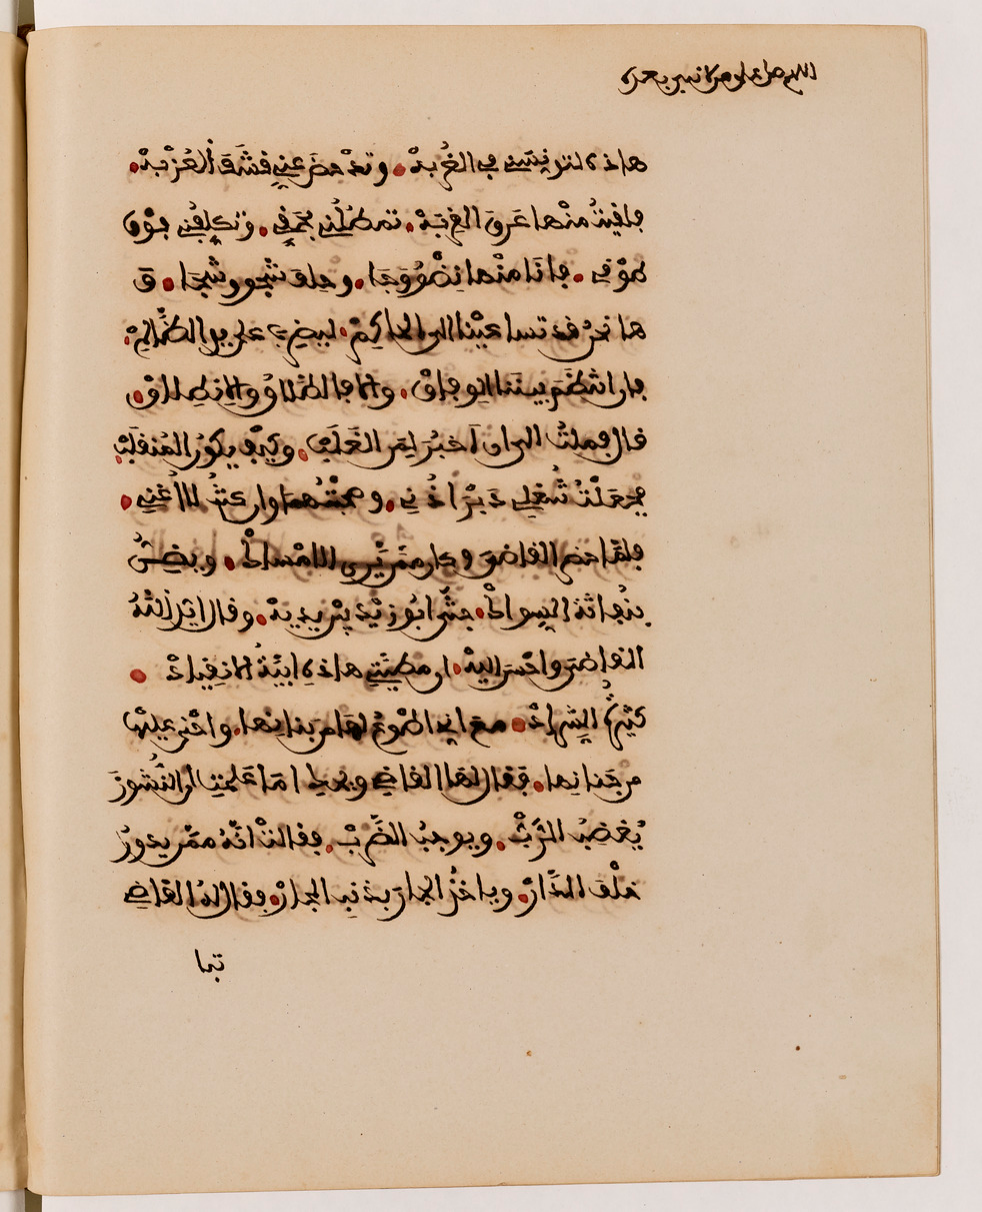 اللهم صل على من لا نبي بعده
هاذه لتونسني في الغربة وترحض عني قشف العزبة
فلقيت منها عرق القربة تمطلني بحقي وتكلفني فوق
طوقي فانا منها نضو وجا وحلف شجو وشجا و
ها نحن قد تساعينا الى الحاكم ليضرب على يد الظالم
فان انتظم بيننا الوفاق والا فالطلاق والانطلاق
قال فملت الى ان اخبر لمن الغلب وكيف يكون المنقلب
فجعلت شغلي دبر اذني وصحبتهما وان كنت لا اغني
فلما حضر القاضي وكان ممن يرى الامساك ويضن
بنفاثة السواك جثى ابو زيد بين يديه وقال ايد الله
القاضي واحسن اليه ان مطيتي هاذه ابية الانقياد
كثيرة الشراد مع اني اطوع لها من بنانها واحنى عليها
من جنانها فقال لها القاضي ويحك اما علمت ان النشوز
يغضب الرب ويوجب الضرب فقالت انه ممن يدور
خلف الدار وياخذ الجار بذنب الجار فقال له القاضي
تبا